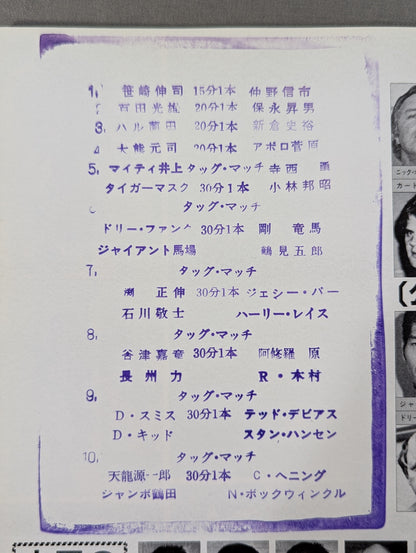 1. 笹崎伸司 15分1本 仲野信市
2 百田光雄 20分1本 保永昇男
3. ハル薗田 20分1本 新倉史裕
4 大熊元司 20分1本 アポロ菅原
5. マイティ井上 タッグ・マッチ 寺西 勇
タイガーマスク 30分1本 小林邦昭
6 タッグ・マッチ
ドリー・ファンク 30分1本 剛 竜馬
ジャイアント馬場 鶴見五郎
7. タッグ・マッチ
渕 正伸 30分1本 ジェシー・バー
石川敬士 ハーリー・レイス
8. タッグ・マッチ
谷津嘉章 30分1本 阿修羅 原
長州 力 R・木村
9. タッグ・マッチ
D・スミス 30分1本 テッド・デビアス
D・キッド スタン・ハンセン
10. タッグ・マッチ
天龍源一郎 30分1本 C・ヘニング
ジャンボ鶴田 N・ボックウィンクル
ニック・
カート
ジャ
ドリー